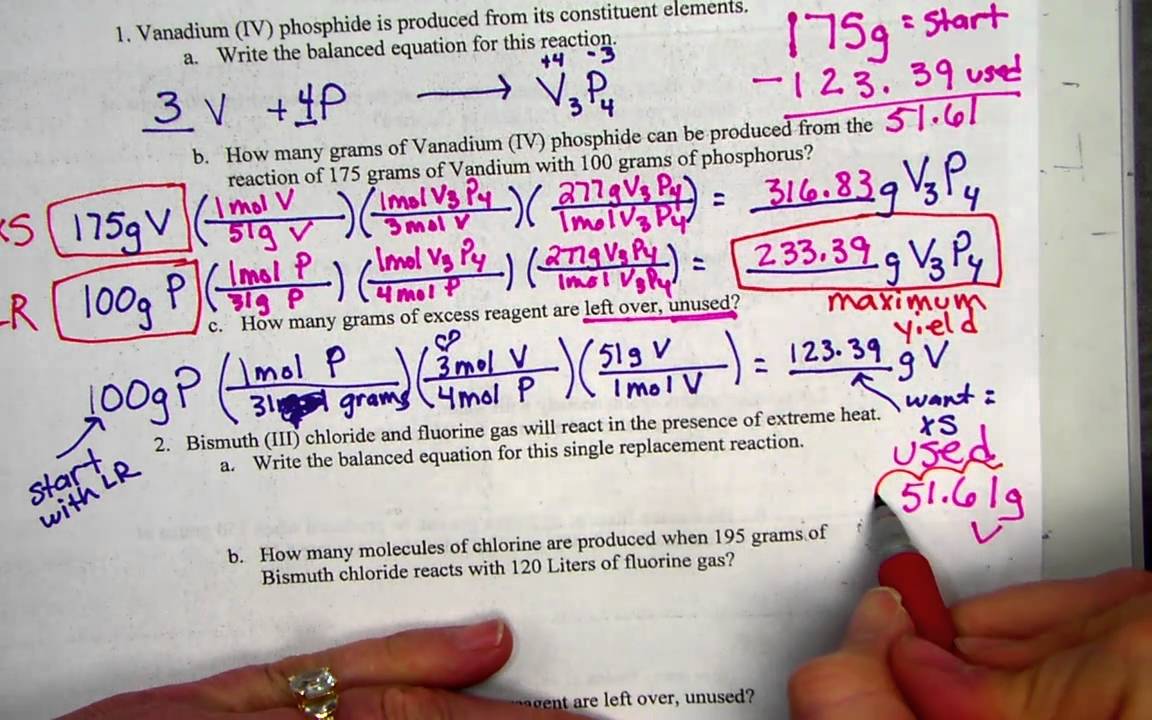 1. Vanadium (IV) phosphide is produced from its constituent elements.
175g = Start
a. Write the balanced equation for this reaction.
+4 -3
- 123.39 used
3 V + 4P → V3P4
51.61
b. How many grams of Vanadium (IV) phosphide can be produced from the
reaction of 175 grams of Vandium with 100 grams of phosphorus?
XS 175g V (1mol V / 51g V)(1mol V3P4 / 3mol V)(277g V3P4 / 1mol V3P4) = 316.83 g V3P4
LR 100g P (1mol P / 31g P)(1mol V3P4 / 4mol P)(277g V3P4 / 1mol V3P4) = 233.39 g V3P4
maximum
yield
c. How many grams of excess reagent are left over, unused?
100g P (1mol P / 31 grams)(3mol V / 4mol P)(51g V / 1mol V) = 123.39 g V
want =
XS
used
start
with LR
2. Bismuth (III) chloride and fluorine gas will react in the presence of extreme heat.
a. Write the balanced equation for this single replacement reaction.
51.61g
V
b. How many molecules of chlorine are produced when 195 grams of
Bismuth chloride reacts with 120 Liters of fluorine gas?
are left over, unused?